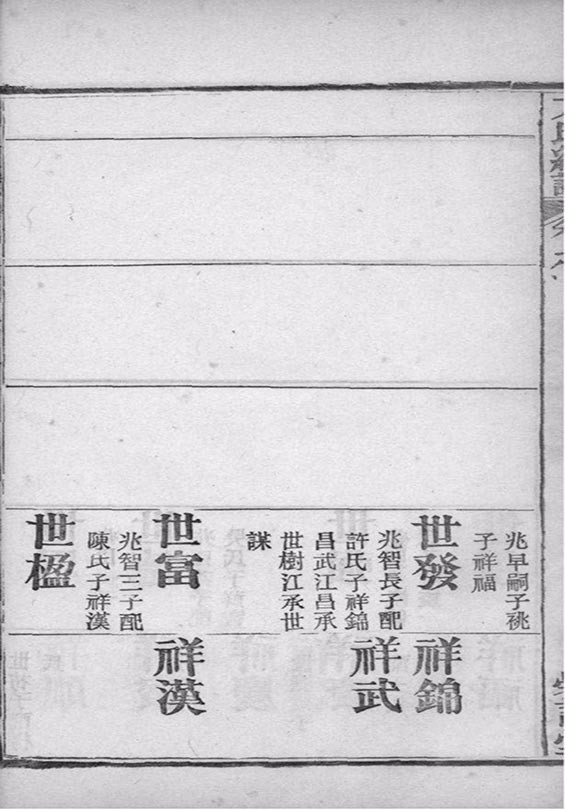 兆早嗣子祧
子祥福
世發
兆智長子配
許氏子祥錦
昌武江昌承
世樹江承世
謀
世富
兆智三子配
陳氏子祥漢
世楹
祥錦
祥武
祥漢